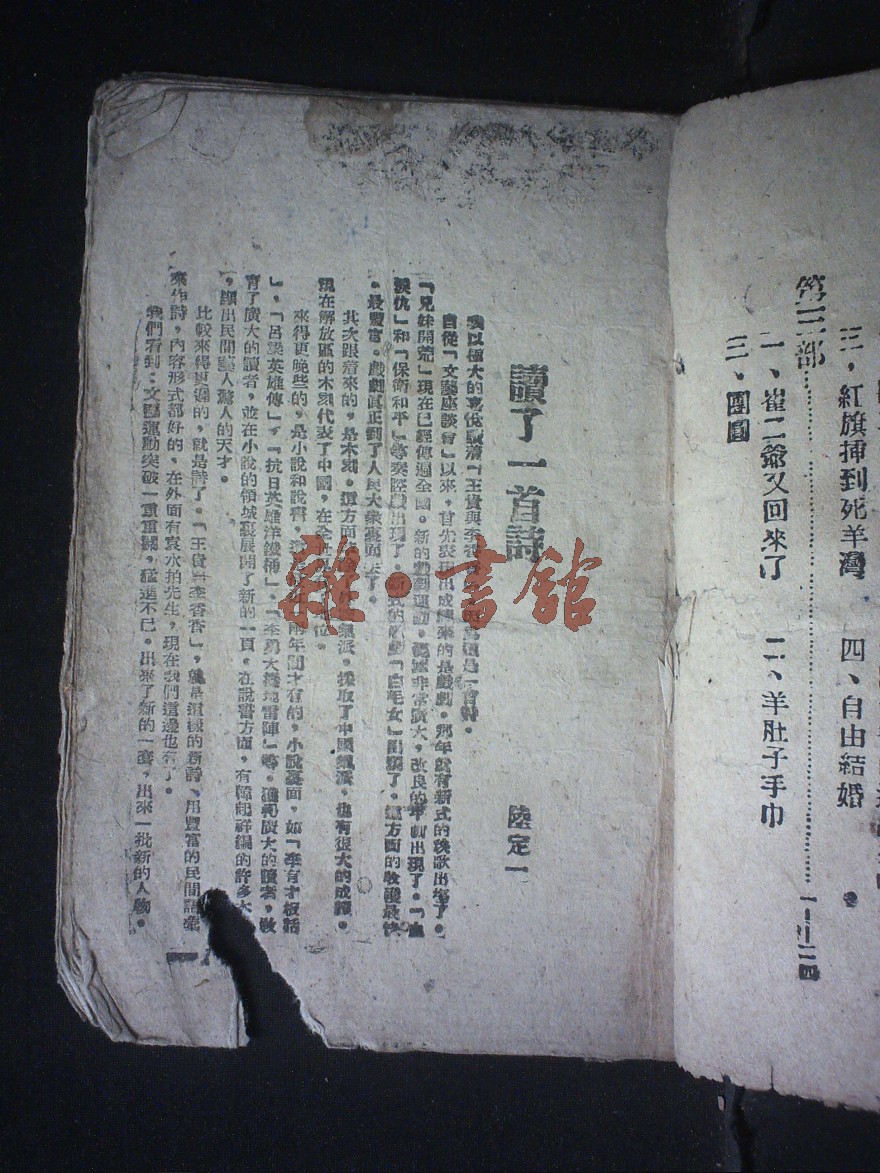 三，紅旗插到死羊灣　四、自由結婚
第三部
一、崔二爺又回來了　二、羊肚子手巾
三、團圓
讀了一首詩
陸定一
我以極大的喜悅讀着「王貴與李香 是一首詩。
自從「文藝座談會」以來，首先表現出成績來的是戲劇。那年就有新式的秧歌出來了。
「兄妹開荒」現在已經傳遍全國。新的戲劇運動， 非常廣大，改良的平劇出現了。「血
淚仇」和「保衛和平」等秦腔戲出現了。新式的歌劇「白毛女」出現了。這方面的收穫最快
，最豐富。戲劇眞正到了人民大衆裏面去了。
其次跟着來的，是木刻。這方面 氣派，採取了中國氣派，也有很大的成績。
現在解放區的木刻代表了中國，在全世界 位。
來得更晚些的，是小說和說書， 兩年間才有的，小說裏面，如「李有才板話
」，「呂梁英雄傳」，「抗日英雄洋鐵桶」，「李勇大擺地雷陣」等。獲得廣大的讀者，敎
育了廣大的讀者，並在小說的領域裏展開了新的一頁。在說書方面，有韓起祥編的許多本
，顯出民間藝人驚人的天才。
比較來得更遲的，就是詩了。「王貴與李香香」，就是這樣的新詩。用豐富的民間語彙
來作詩，內容形式都好的，在外面有袁水拍先生，現在我們這邊也有了。
我們看到：文藝運動突破一重重關，猛進不已。出來了新的一套，出來一批新的人物。
一
雜·書館